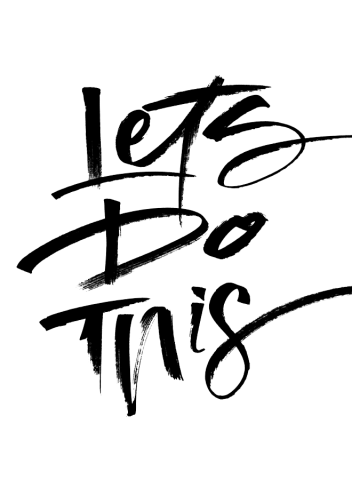 Lets
Do
This